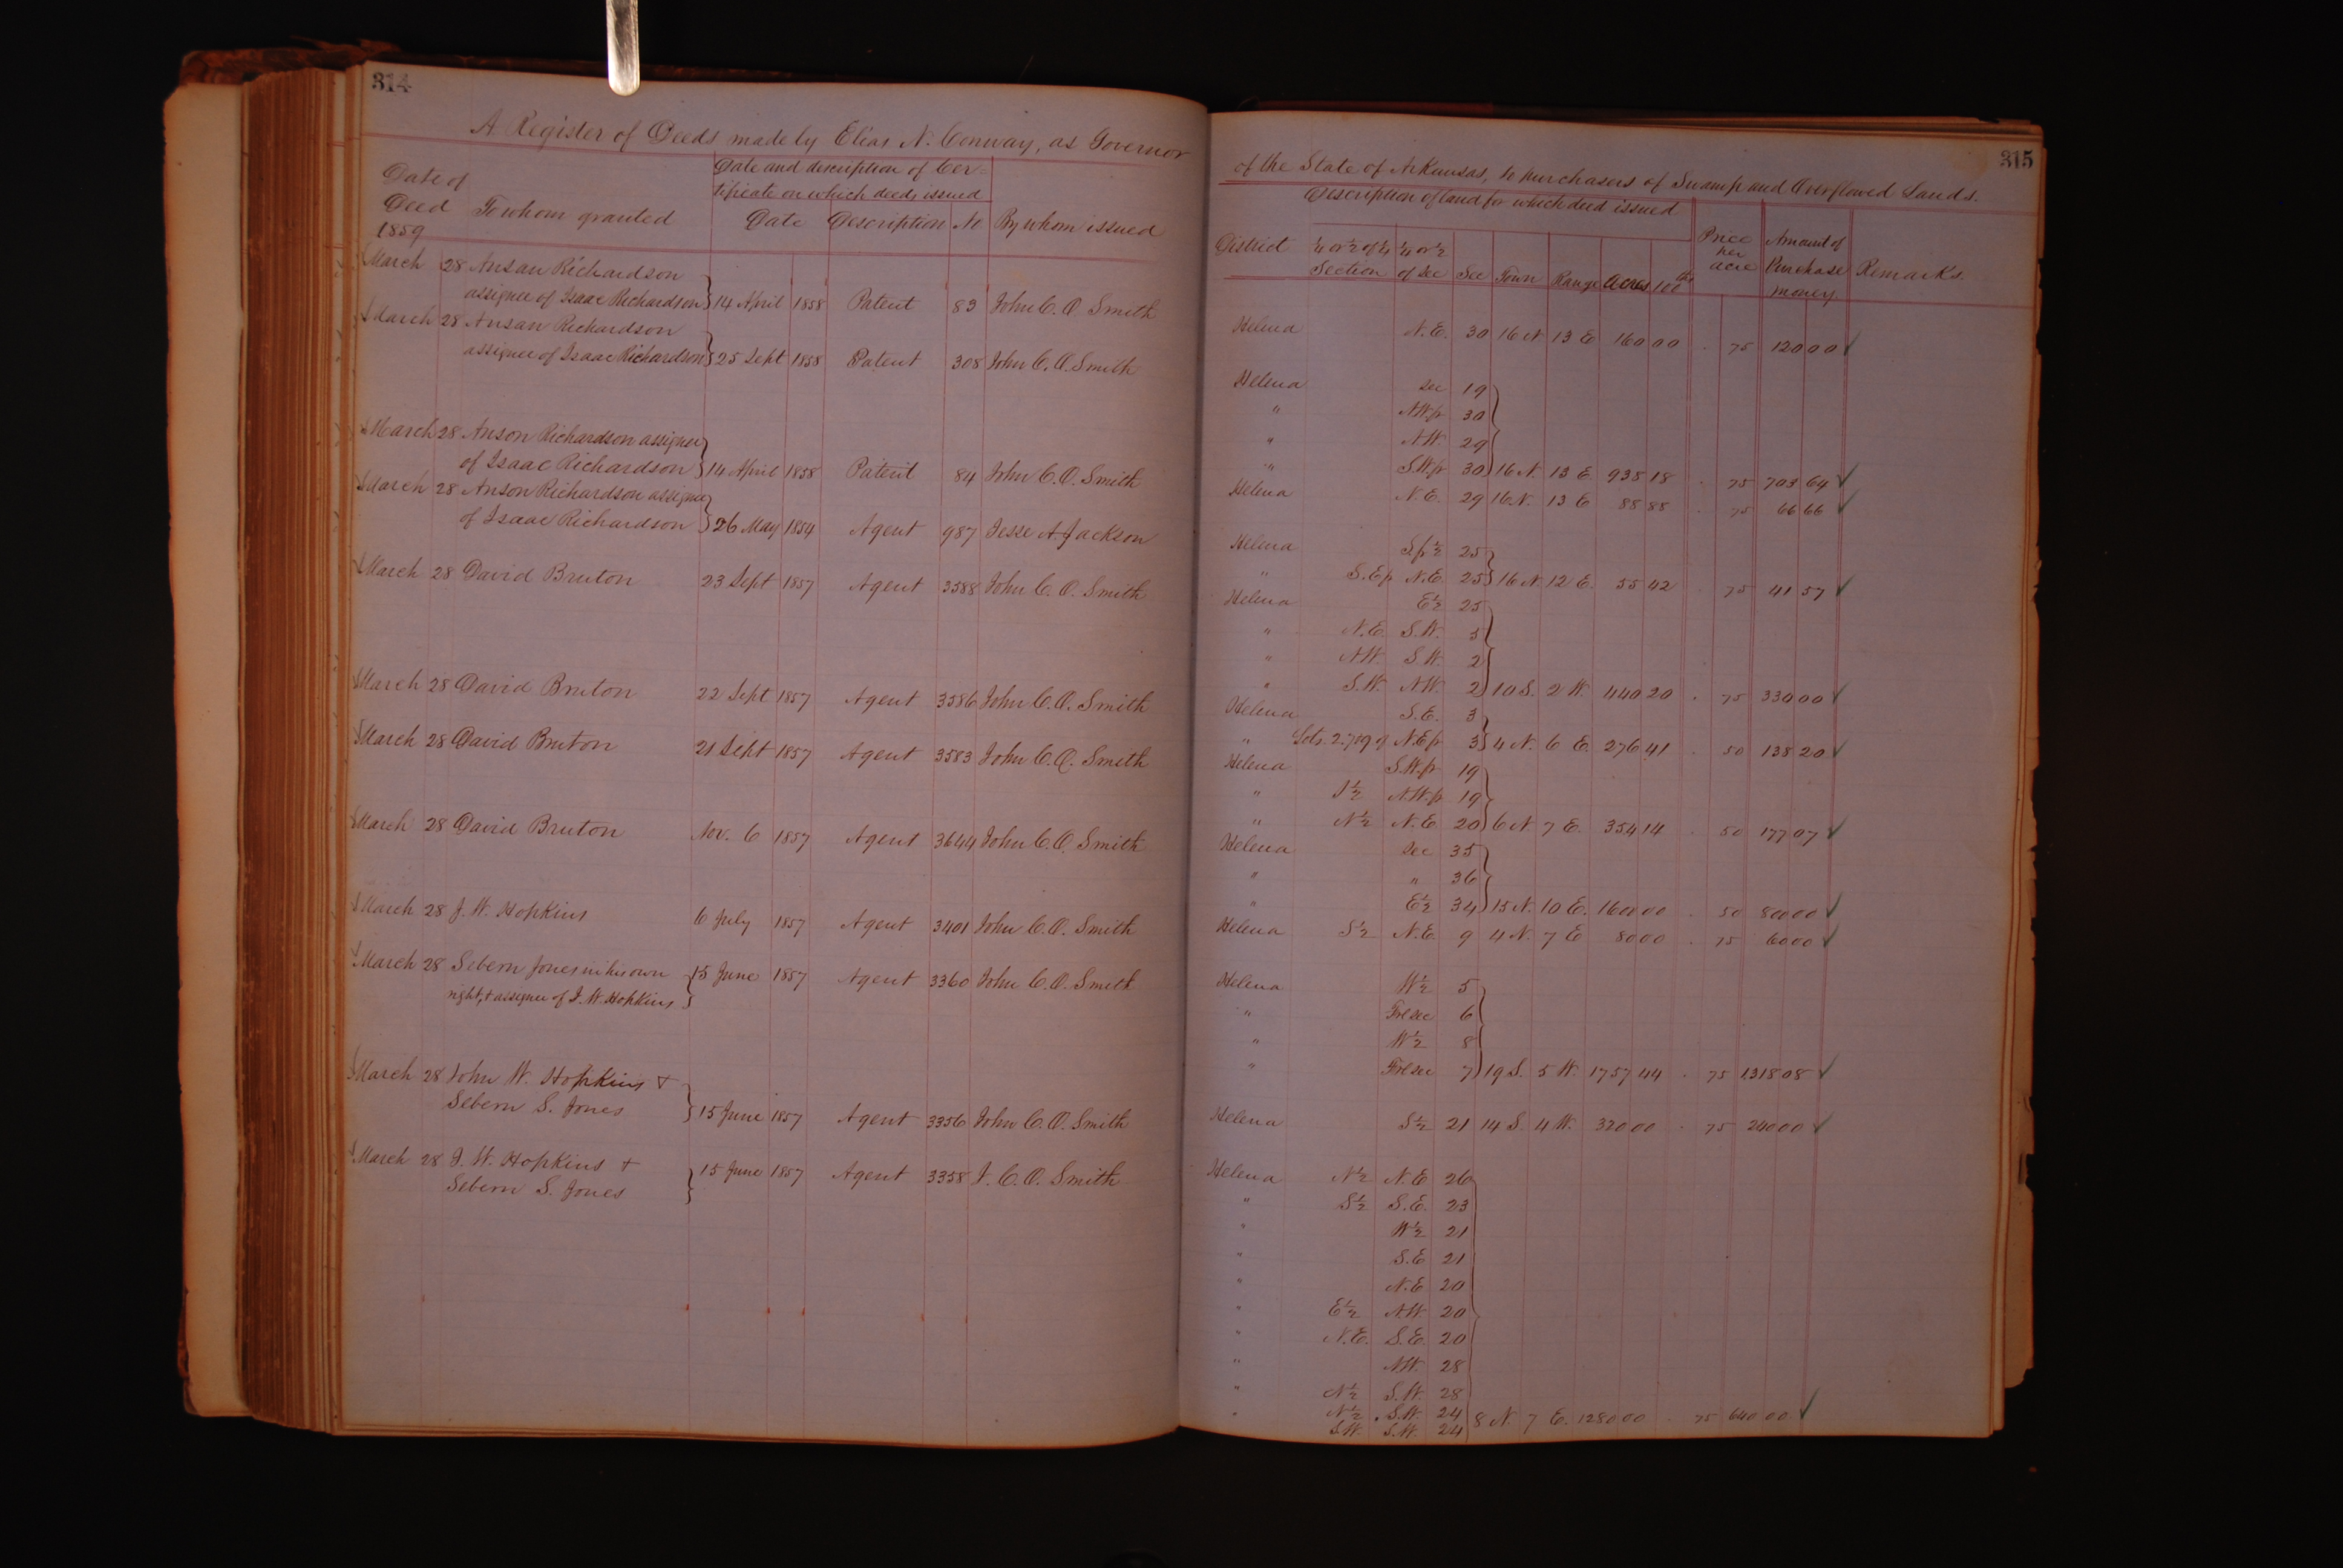 314
A Register of Deeds made by Elias N. Conway, as Governor
Date of Deed 1859
To whom granted
Date and description of Cer-
tificate on which deeds issued
Date Description No By whom issued
March 28 Ansan Richardson
assignee of Isaac Richardson } 14 April 1858 Patent 83 John C. O. Smith
March 28 Ansan Richardson
assignee of Isaac Richardson } 25 Sept 1858 Patent 308 John C. O. Smith
March 28 Anson Richardson assignee
of Isaac Richardson } 14 April 1858 Patent 84 John C. O. Smith
March 28 Anson Richardson assignee
of Isaac Richardson } 26 May 1854 Agent 987 Jesse A. Jackson
March 28 David Bruton 23 Sept 1857 Agent 3588 John C. O. Smith
March 28 David Bruton 22 Sept 1857 Agent 3586 John C. O. Smith
March 28 David Bruton 21 Sept 1857 Agent 3583 John C. O. Smith
March 28 David Bruton Nov. 6 1857 Agent 3644 John C. O. Smith
March 28 J. W. Hopkins 6 July 1857 Agent 3401 John C. O. Smith
March 28 Sebern Jones in his own } 15 June 1857 Agent 3360 John C. O. Smith
right, & assignee of J. W. Hopkins
March 28 John W. Hopkins &
Sebern S. Jones } 15 June 1857 Agent 3356 John C. O. Smith
March 28 J. W. Hopkins & } 15 June 1857 Agent 3358 J. C. O. Smith
Sebern S. Jones
315
of the State of Arkansas, to purchasers of Swamp and Overflowed Lands.
Description of land for which deed issued
District ¼ or ½ of ¼ Section ¼ or ½ of sec Sec Town Range Acres 100ths Price per acre Amount of Purchase money Remarks
Helena N.E. 30 16 N 13 E 160 00 . 75 120 00 ✓
Helena sec 19
" N.W.fr 30
" N.W. 29
" S.W.fr 30 16 N. 13 E 938 18 . 75 703 64 ✓
Helena N.E. 29 16 N. 13 E 88 88 . 75 66 66 ✓
Helena S.fr ½ 25
" S.E.fr N.E. 25 16 N. 12 E. 55 42 . 75 41 57 ✓
Helena E½ 25
" N.E. S.W. 3
" N.W. S.W. 2
" S.W. N.W. 2 10 S. 2 W. 440 20 . 75 330 00 ✓
Helena S.E. 3
" Lots 2.7&9 of N.E.fr 3 4 N. 6 E. 276 41 . 50 138 20 ✓
Helena S.W.fr 19
" S½ N.W.fr 19
" N½ N.E. 20 6 N. 7 E. 354 14 . 50 177 07 ✓
Helena sec 35
" " 36
" E½ 34 15 N. 10 E. 1600 00 . 50 800 00 ✓
Helena S½ N.E. 9 4 N. 7 E 80 00 . 75 60 00 ✓
Helena W½ 5
" Frl sec 6
" W½ 8
" Frl sec 7 19 S. 5 W. 1757 44 . 75 1318 08 ✓
Helena S½ 21 14 S. 4 W. 320 00 . 75 240 00 ✓
Helena N½ N.E. 26
" S½ S.E. 23
" W½ 21
" S.E 21
" N.E 20
" E½ N.W. 20
" N.E. S.E. 20
" N.W. 28
" N½ S.W. 28
" N½ S.W. 24 8 N. 7 E. 1280 00 . 75 640 00 ✓
S.W. S.W. 24